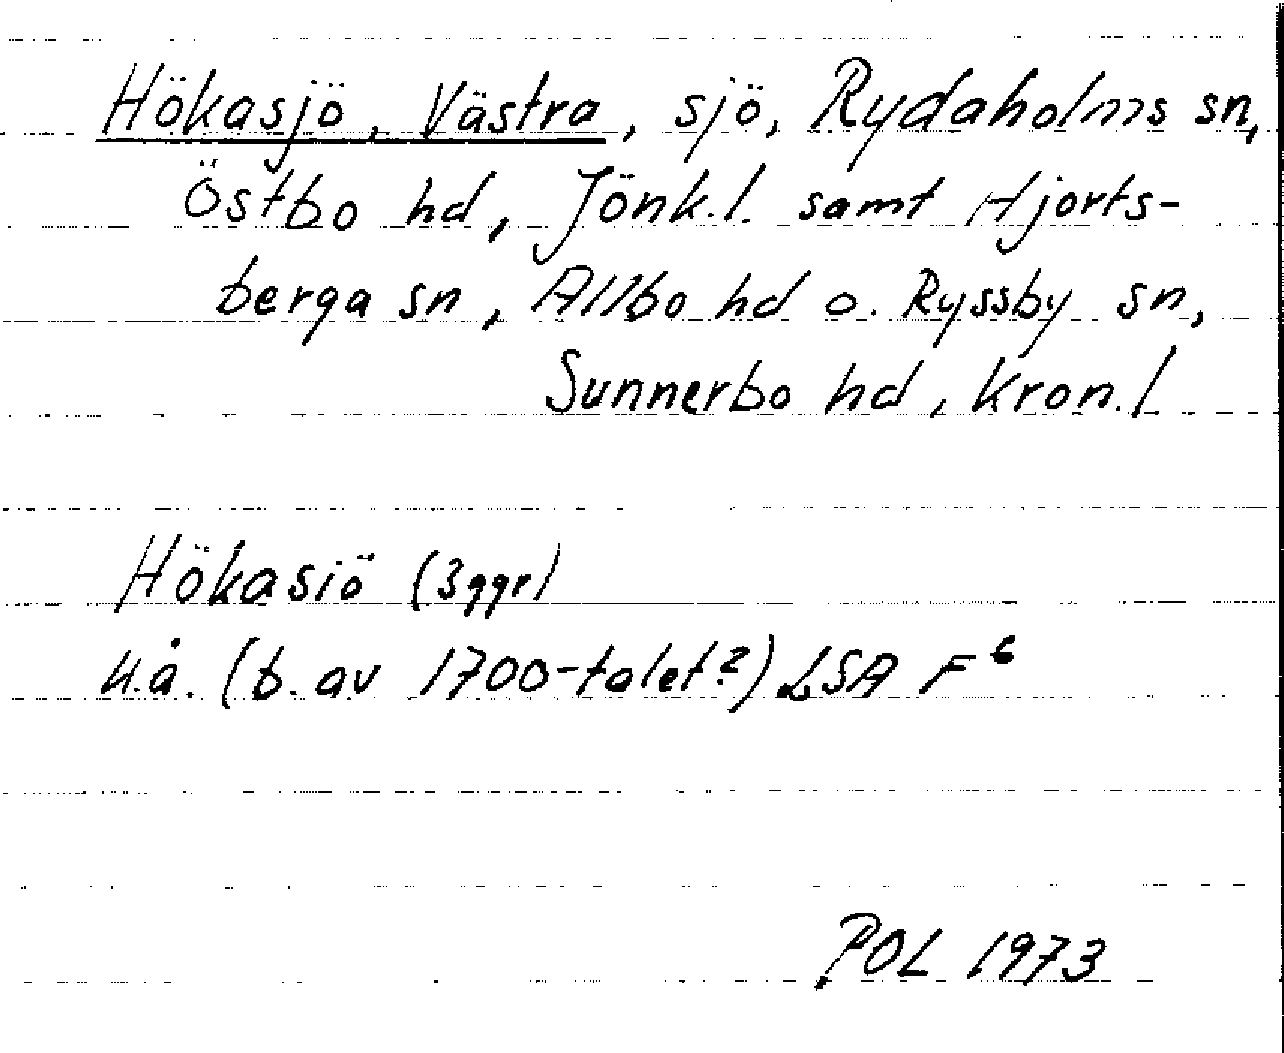 Hökasjö, Västra, sjö, Rydaholms sn,
Östbo hd, Jönk.l. samt Hjorts-
berga sn, Allbo hd o. Ryssby sn,
Sunnerbo hd, Kron.l
Hökasiö (3ggr)
u.å. (b. av 1700-talet?) LSA F⁶
POL 1973